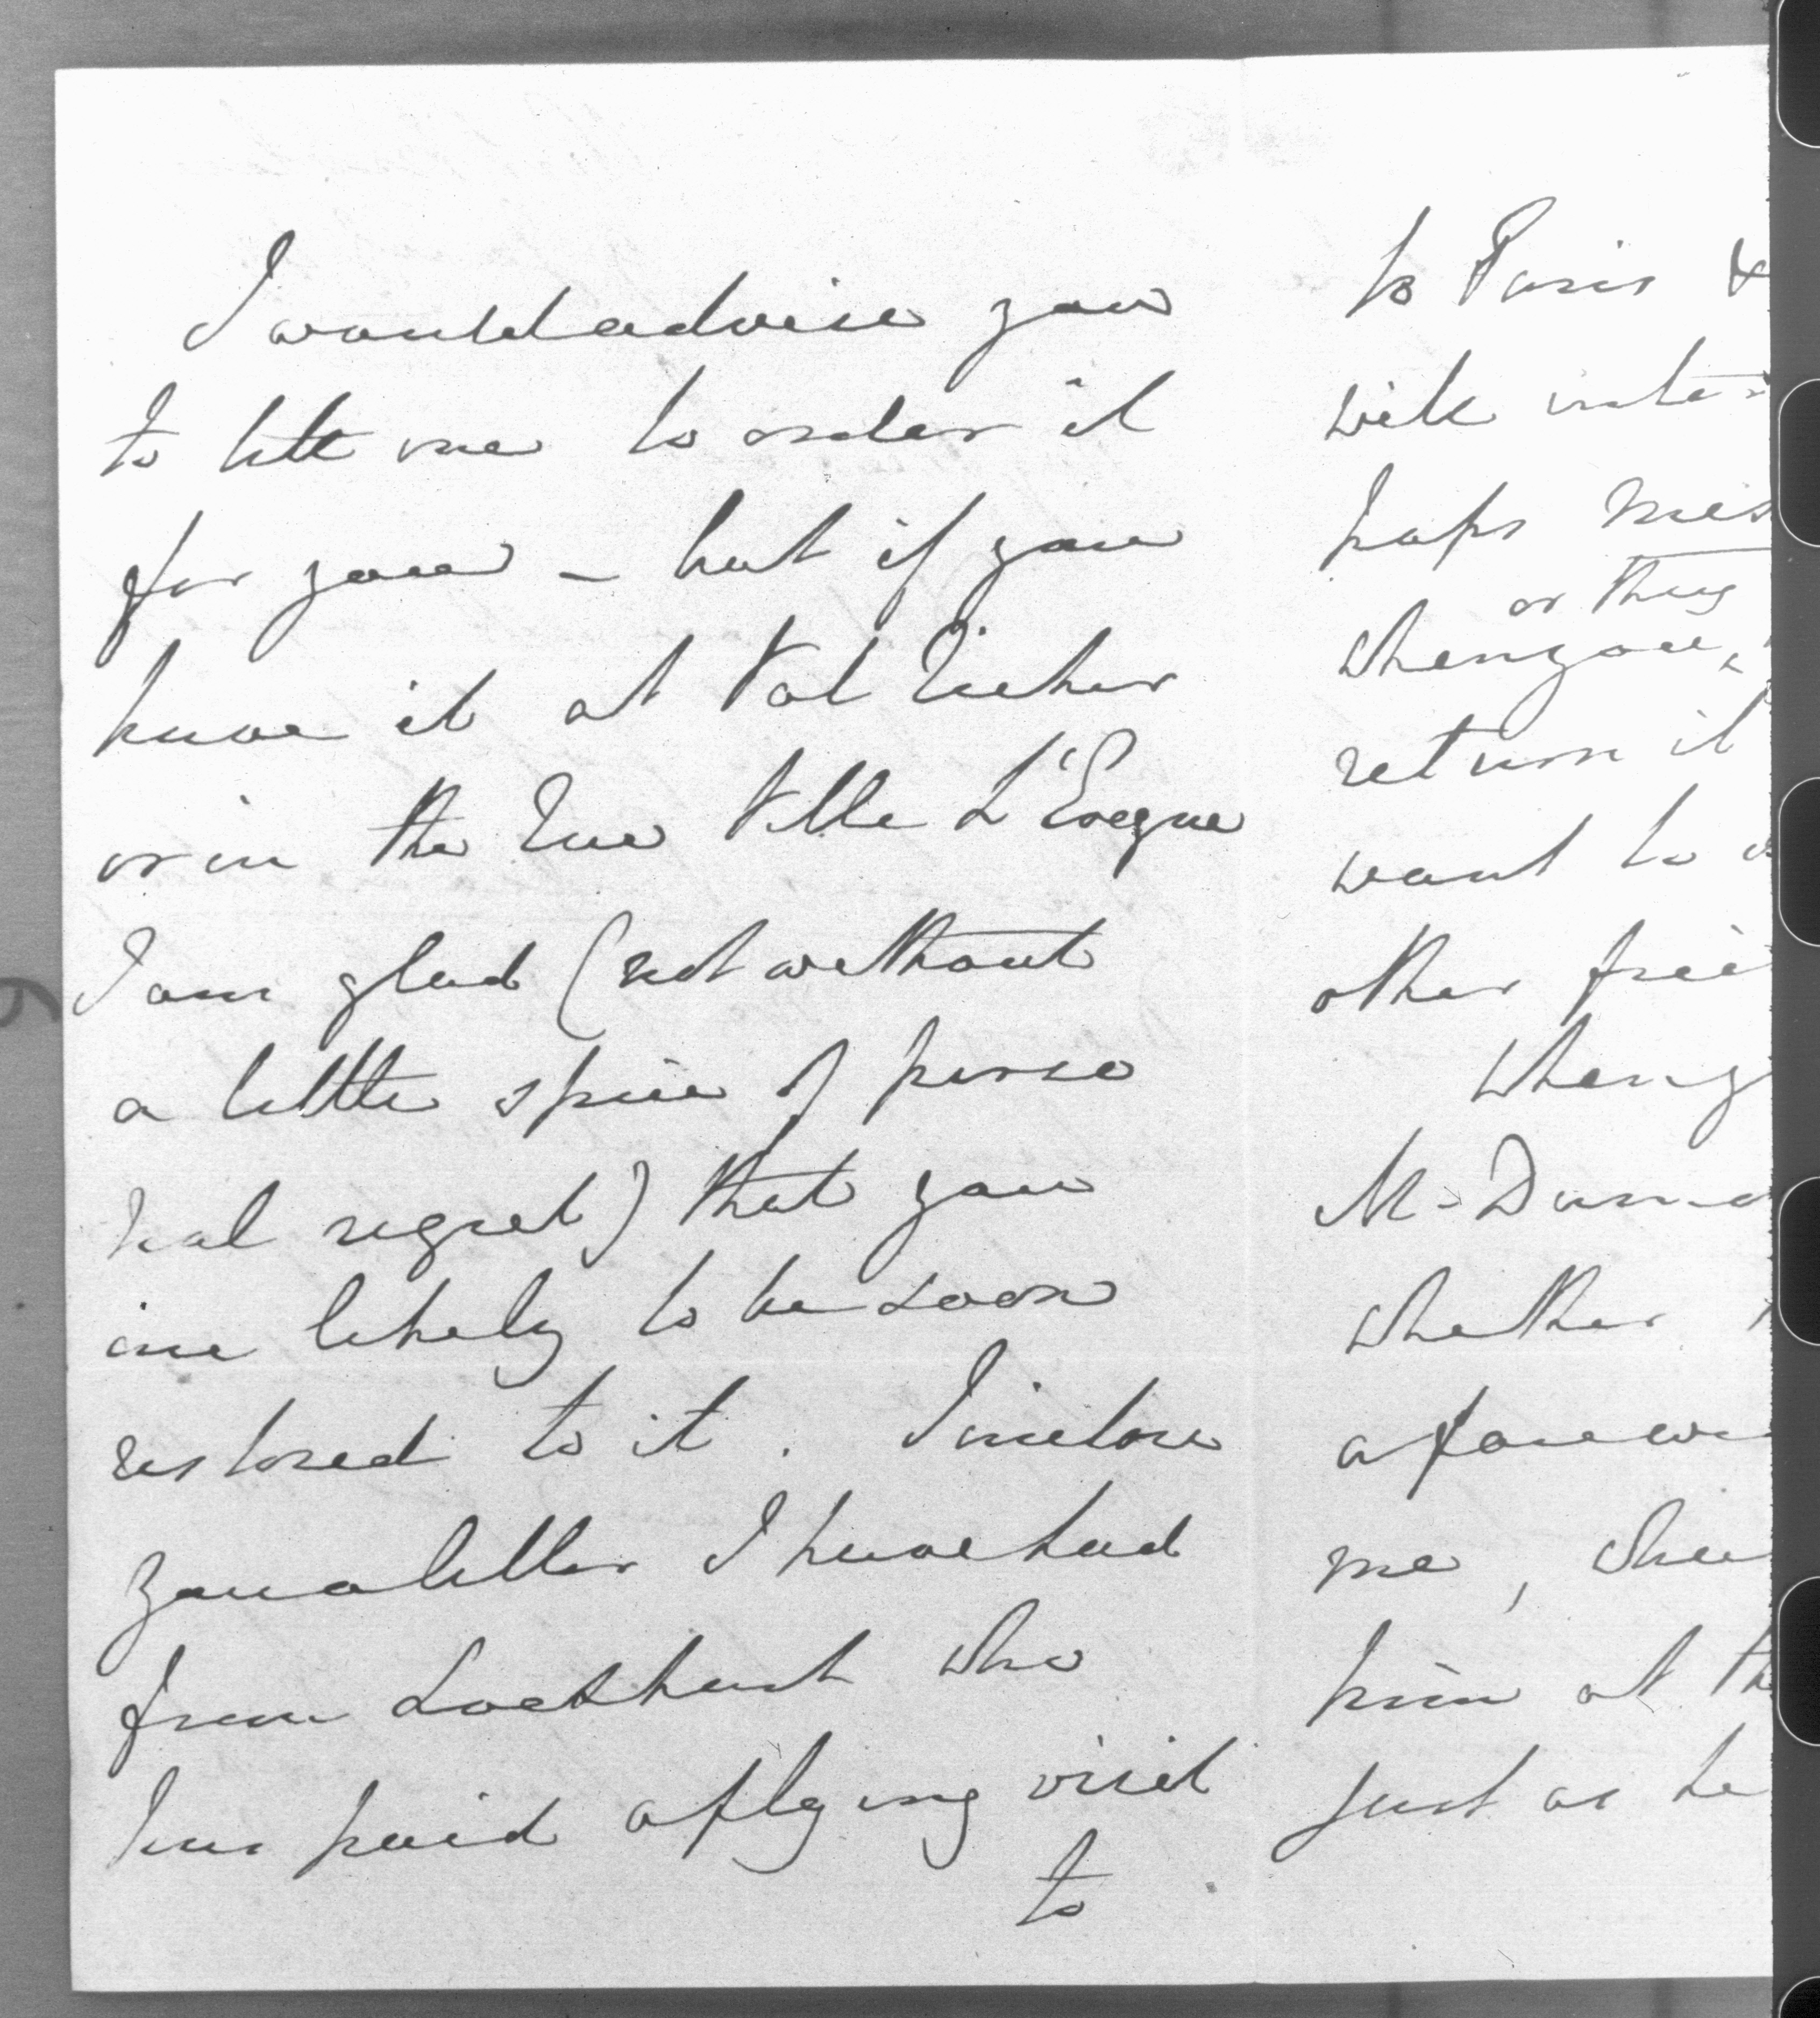 I would advise you
to let me to order it
for you – but if you
have it at Val Richer
or in the Rue Ville L'Eveque
I am glad (not without
a little spice of perso
nal regret) that you
are likely to be soon
restored to it. I inclose
you a letter I have had
from Lockhart who
has paid a flying visit
to
to Paris &
with inte
haps
or they
when you,
return it
want to
other frie
when y
Mr Dumo
whether
a few
me, she
him at th
just as he